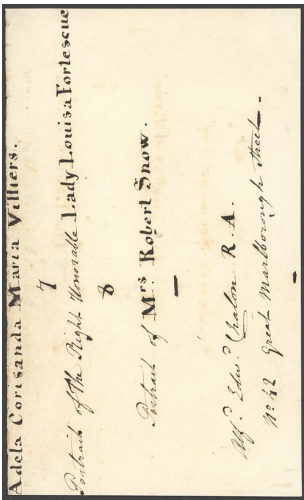 Adela Corisanda Maria Villiers.
7
Portrait of The Right Honorable Lady Louisa Fortescue
8
Portrait of Mrs Robert Snow.
Alfd. Edwd. Chalon R.A.
No. 42 Great Marlborough Street